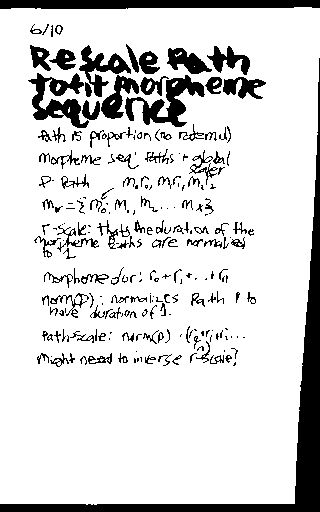 6/10
Rescale Path
to fit morpheme
sequence
Path is proportion (no rademul)
morpheme seq: Paths + global
scaler
P: Path m₀r₀, m₁r₁, m₂r₂
m₀ = { m₀, m₁, m₂ ... mₓ}
r-scale: that's the duration of the
morpheme Paths are normalized
to 1
morpheme dur: r₀+r₁+..+rₙ
norm(P): normalizes Path P to
have duration of 1.
Path-scale: norm(P) ·
might need to inverse r-scale?